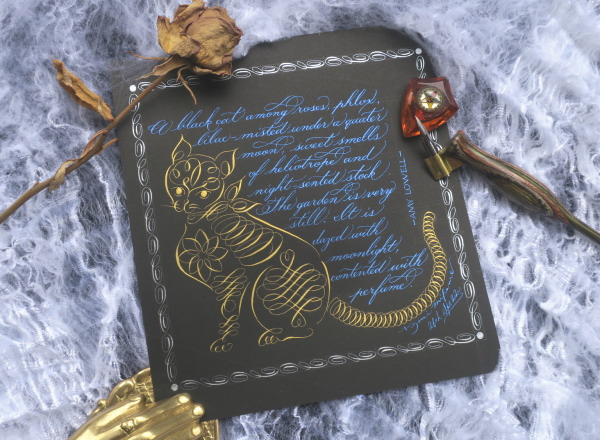 A black cat among roses, phlox,
lilac-misted under a quarter
moon, sweet smells
of heliotrope and
night-scented stock.
The garden is very
still. It is
dazed with
moonlight,
contented with
perfume.
-AMY LOWELL-